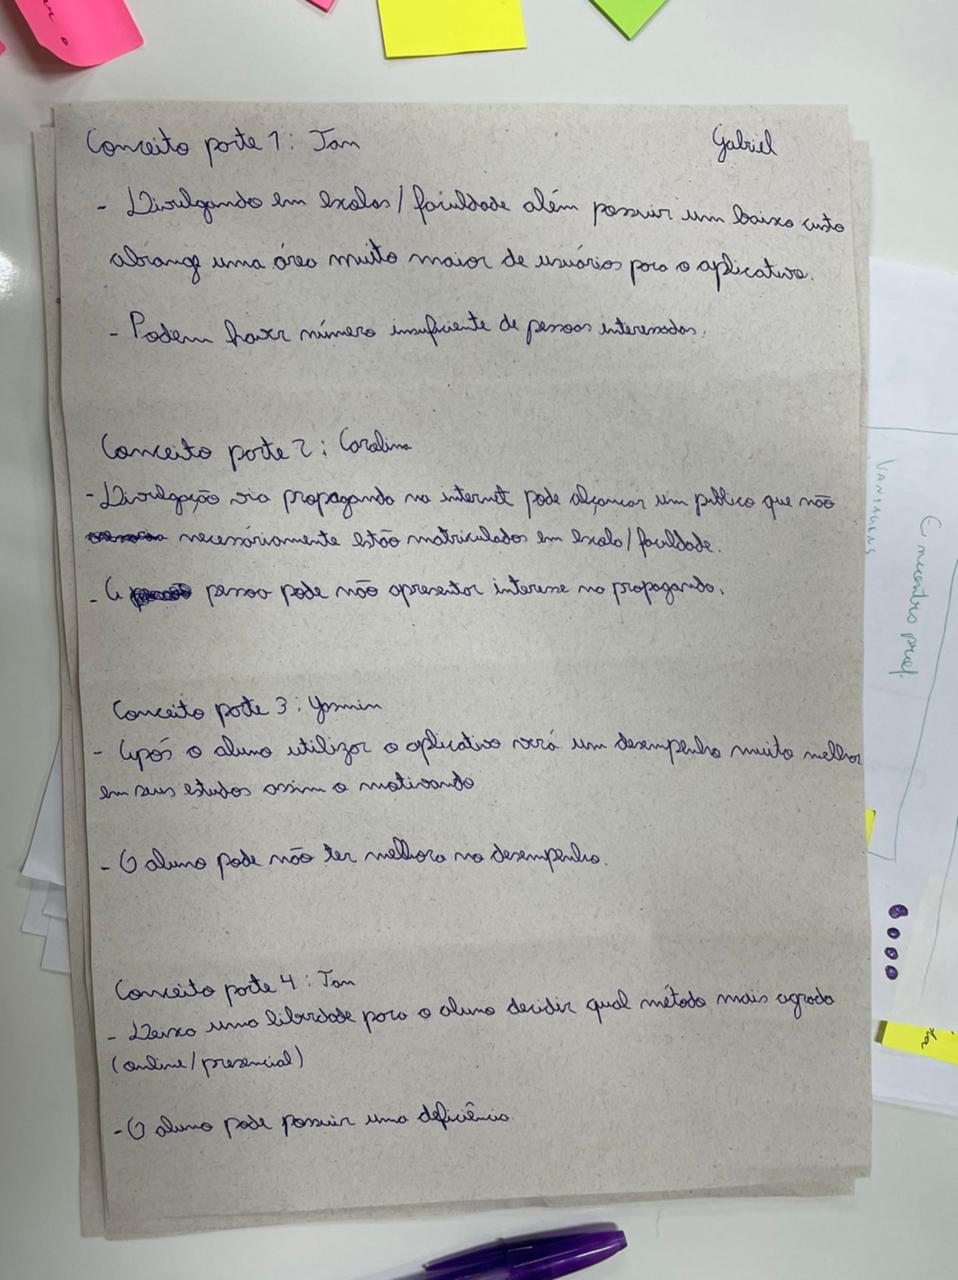 Conceito parte 1: Ian
Gabriel
- Divulgando em escolas/faculdade além possuir um baixo custo
abrange uma área muito maior de usuários para o aplicativo.
- Podem haver número insuficiente de pessoas interessadas.
Conceito parte 2: Carolina
- Divulgação via propaganda na internet pode alcançar um público que não
necessáriamente estão matriculados em escola/faculdade.
- A pessoa pode não apresentar interesse na propaganda.
Conceito parte 3: Yasmin
- Após o aluno utilizar o aplicativo verá um desempenho muito melhor
em seus estudos assim o motivando
- O aluno pode não ter melhora no desempenho.
Conceito parte 4: Ian
- Deixa uma liberdade para o aluno decidir qual método mais agrada
(online/presencial)
- O aluno pode possuir uma deficiência
VANTAGENS
Encontro prof.